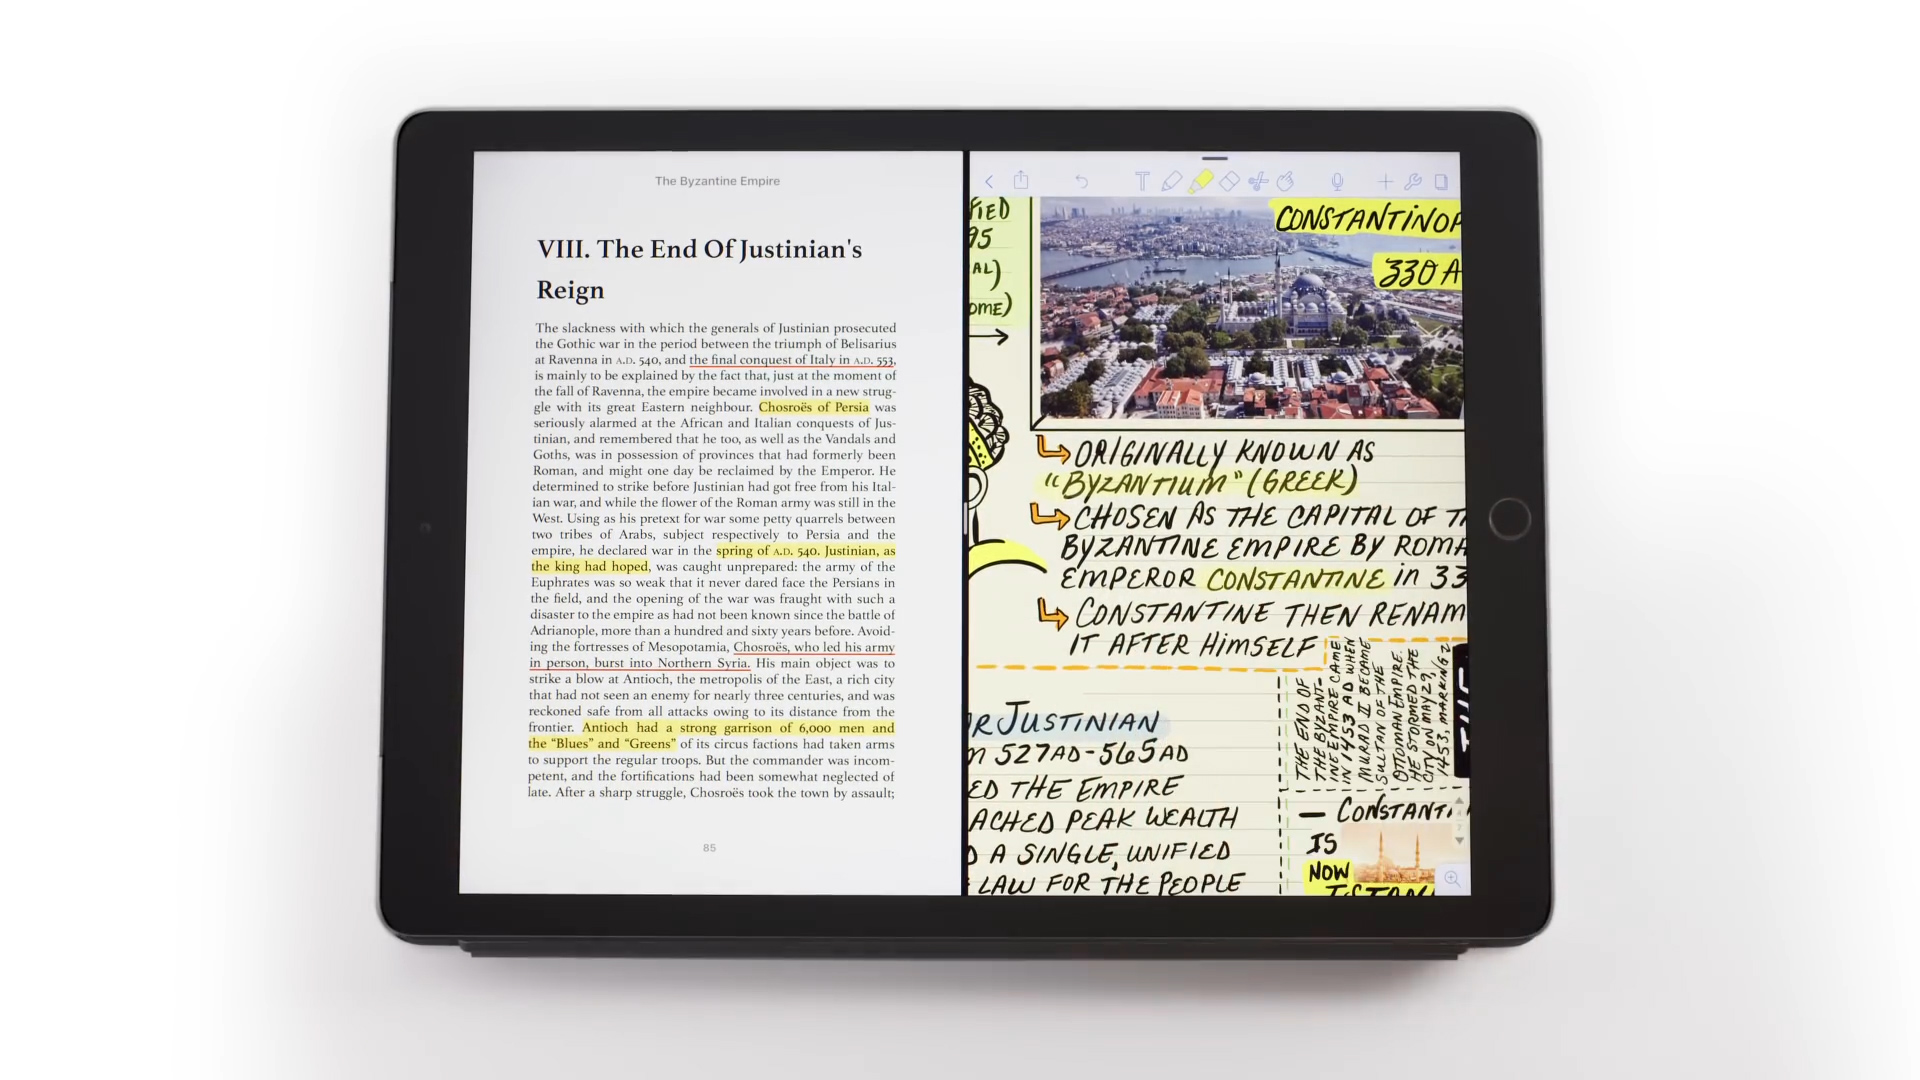 The Byzantine Empire
VIII. The End Of Justinian's
Reign
The slackness with which the generals of Justinian prosecuted
the Gothic war in the period between the triumph of Belisarius
at Ravenna in A.D. 540, and the final conquest of Italy in A.D. 553,
is mainly to be explained by the fact that, just at the moment of
the fall of Ravenna, the empire became involved in a new strug-
gle with its great Eastern neighbour. Chosroës of Persia was
seriously alarmed at the African and Italian conquests of Jus-
tinian, and remembered that he too, as well as the Vandals and
Goths, was in possession of provinces that had formerly been
Roman, and might one day be reclaimed by the Emperor. He
determined to strike before Justinian had got free from his Ital-
ian war, and while the flower of the Roman army was still in the
West. Using as his pretext for war some petty quarrels between
two tribes of Arabs, subject respectively to Persia and the
empire, he declared war in the spring of A.D. 540. Justinian, as
the king had hoped, was caught unprepared: the army of the
Euphrates was so weak that it never dared face the Persians in
the field, and the opening of the war was fraught with such a
disaster to the empire as had not been known since the battle of
Adrianople, more than a hundred and sixty years before. Avoid-
ing the fortresses of Mesopotamia, Chosroës, who led his army
in person, burst into Northern Syria. His main object was to
strike a blow at Antioch, the metropolis of the East, a rich city
that had not seen an enemy for nearly three centuries, and was
reckoned safe from all attacks owing to its distance from the
frontier. Antioch had a strong garrison of 6,000 men and
the “Blues” and “Greens” of its circus factions had taken arms
to support the regular troops. But the commander was incom-
petent, and the fortifications had been somewhat neglected of
late. After a sharp struggle, Chosroës took the town by assault;
85
FIED
95
AL)
OME)
CONSTANTINOP
330 A
ORIGINALLY KNOWN AS
“BYZANTIUM” (GREEK)
CHOSEN AS THE CAPITAL OF TH
BYZANTINE EMPIRE BY ROMA
EMPEROR CONSTANTINE in 33
CONSTANTINE THEN RENAM
IT AFTER HIMSELF
R JUSTINIAN
M 527AD-565AD
ED THE EMPIRE
ACHED PEAK WEALTH
D A SINGLE, UNIFIED
LAW FOR THE PEOPLE
THE END OF
THE BYZANT-
INE EMPIRE CAME
IN 1453 AD WHEN
MURAD II BECAME
SULTAN OF THE
OTTOMAN EMPIRE.
HE STORMED THE
CITY ON MAY 29,
1453, MARKING
— CONSTANTI
IS
NOW